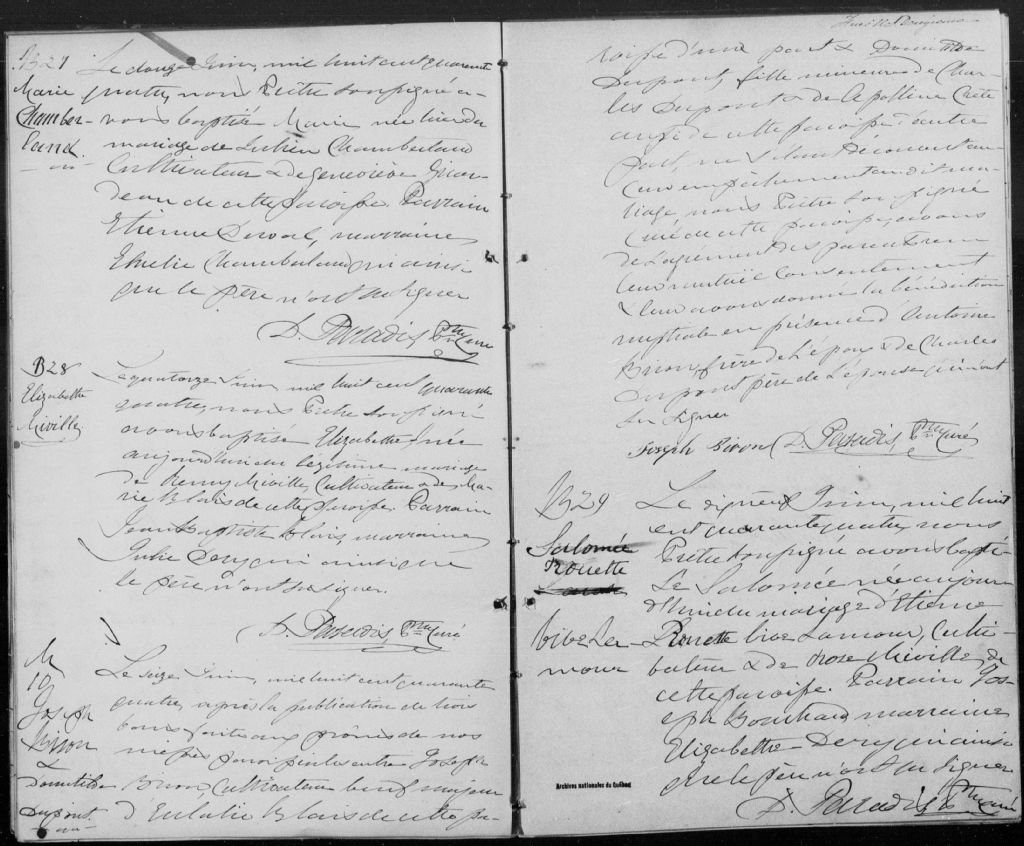 B27
Marie
Chamber-
land.
Le douze Juin, mil huit cent quarante
quatre, nous Prêtre soussigné a-
vons baptisé Marie née hier du
mariage de Lucien Chamberland
Cultivateur & de Geneviève
de cette paroisse. Parrain
Etienne marraine,
Emelie Chamberland qui ainsi
que le père n'ont su signer
D. Paradis Ptre Curé
B28
Elizabethe
Miville
Le quatorze Juin, mil huit cent quarante
quatre, nous Prêtre soussigné
avons baptisé Elizabethe, née
aujourd'hui du légitime mariage
de Remy Miville, Cultivateur & de Ma-
rie Blais de cette Paroisse. Parrain
Jean Baptiste Blais, marraine
Julie Derygin ainsi que
le père n'ont su signer.
D. Paradis Ptre Curé
M
10
Joseph
Brisson
&
Domitilde
Dupont.
Le seize Juin, mil huit cent quarante
quatre, après la publication de trois
bans faite aux prônes de nos
messes paroissiales entre Joseph
Cultivateur veuf majeur
d'Eulalie Blais de cette pa-
roisse d'une part & Domitilde
Dupont fille mineure de Char-
les Dupont & de Apolline Crête
aussi de cette paroisse d'autre
part, ne s'étant découvert au-
cun empêchement au dit ma-
riage, nous Prêtre soussigné
Curé de cette paroisse, avons
de l'agrément des parents reçu
leur mutuel consentement
& leur avons donné la bénédiction
nuptiale en présence d'Antoine
frère de l'époux & de Charles
Dupont père de l'épouse qui n'ont
su signer
Joseph D. Paradis, Ptre Curé
B29
Salomée
Rouette
vive La-
mour
Le Juin, mil huit
cent quarante quatre, nous
Prêtre soussigné avons bapti-
sé Salomée née aujour-
d'hui du mariage d'Etienne
Rouette vive Lamour, Culti-
vateur & de Rose Miville, de
cette paroisse. Parrain Jos-
eph Bouchard marraine
Elizabethe Derygin ainsi
que le père n'ont su signer
D. Paradis Ptre Curé
Archives nationales du Québec